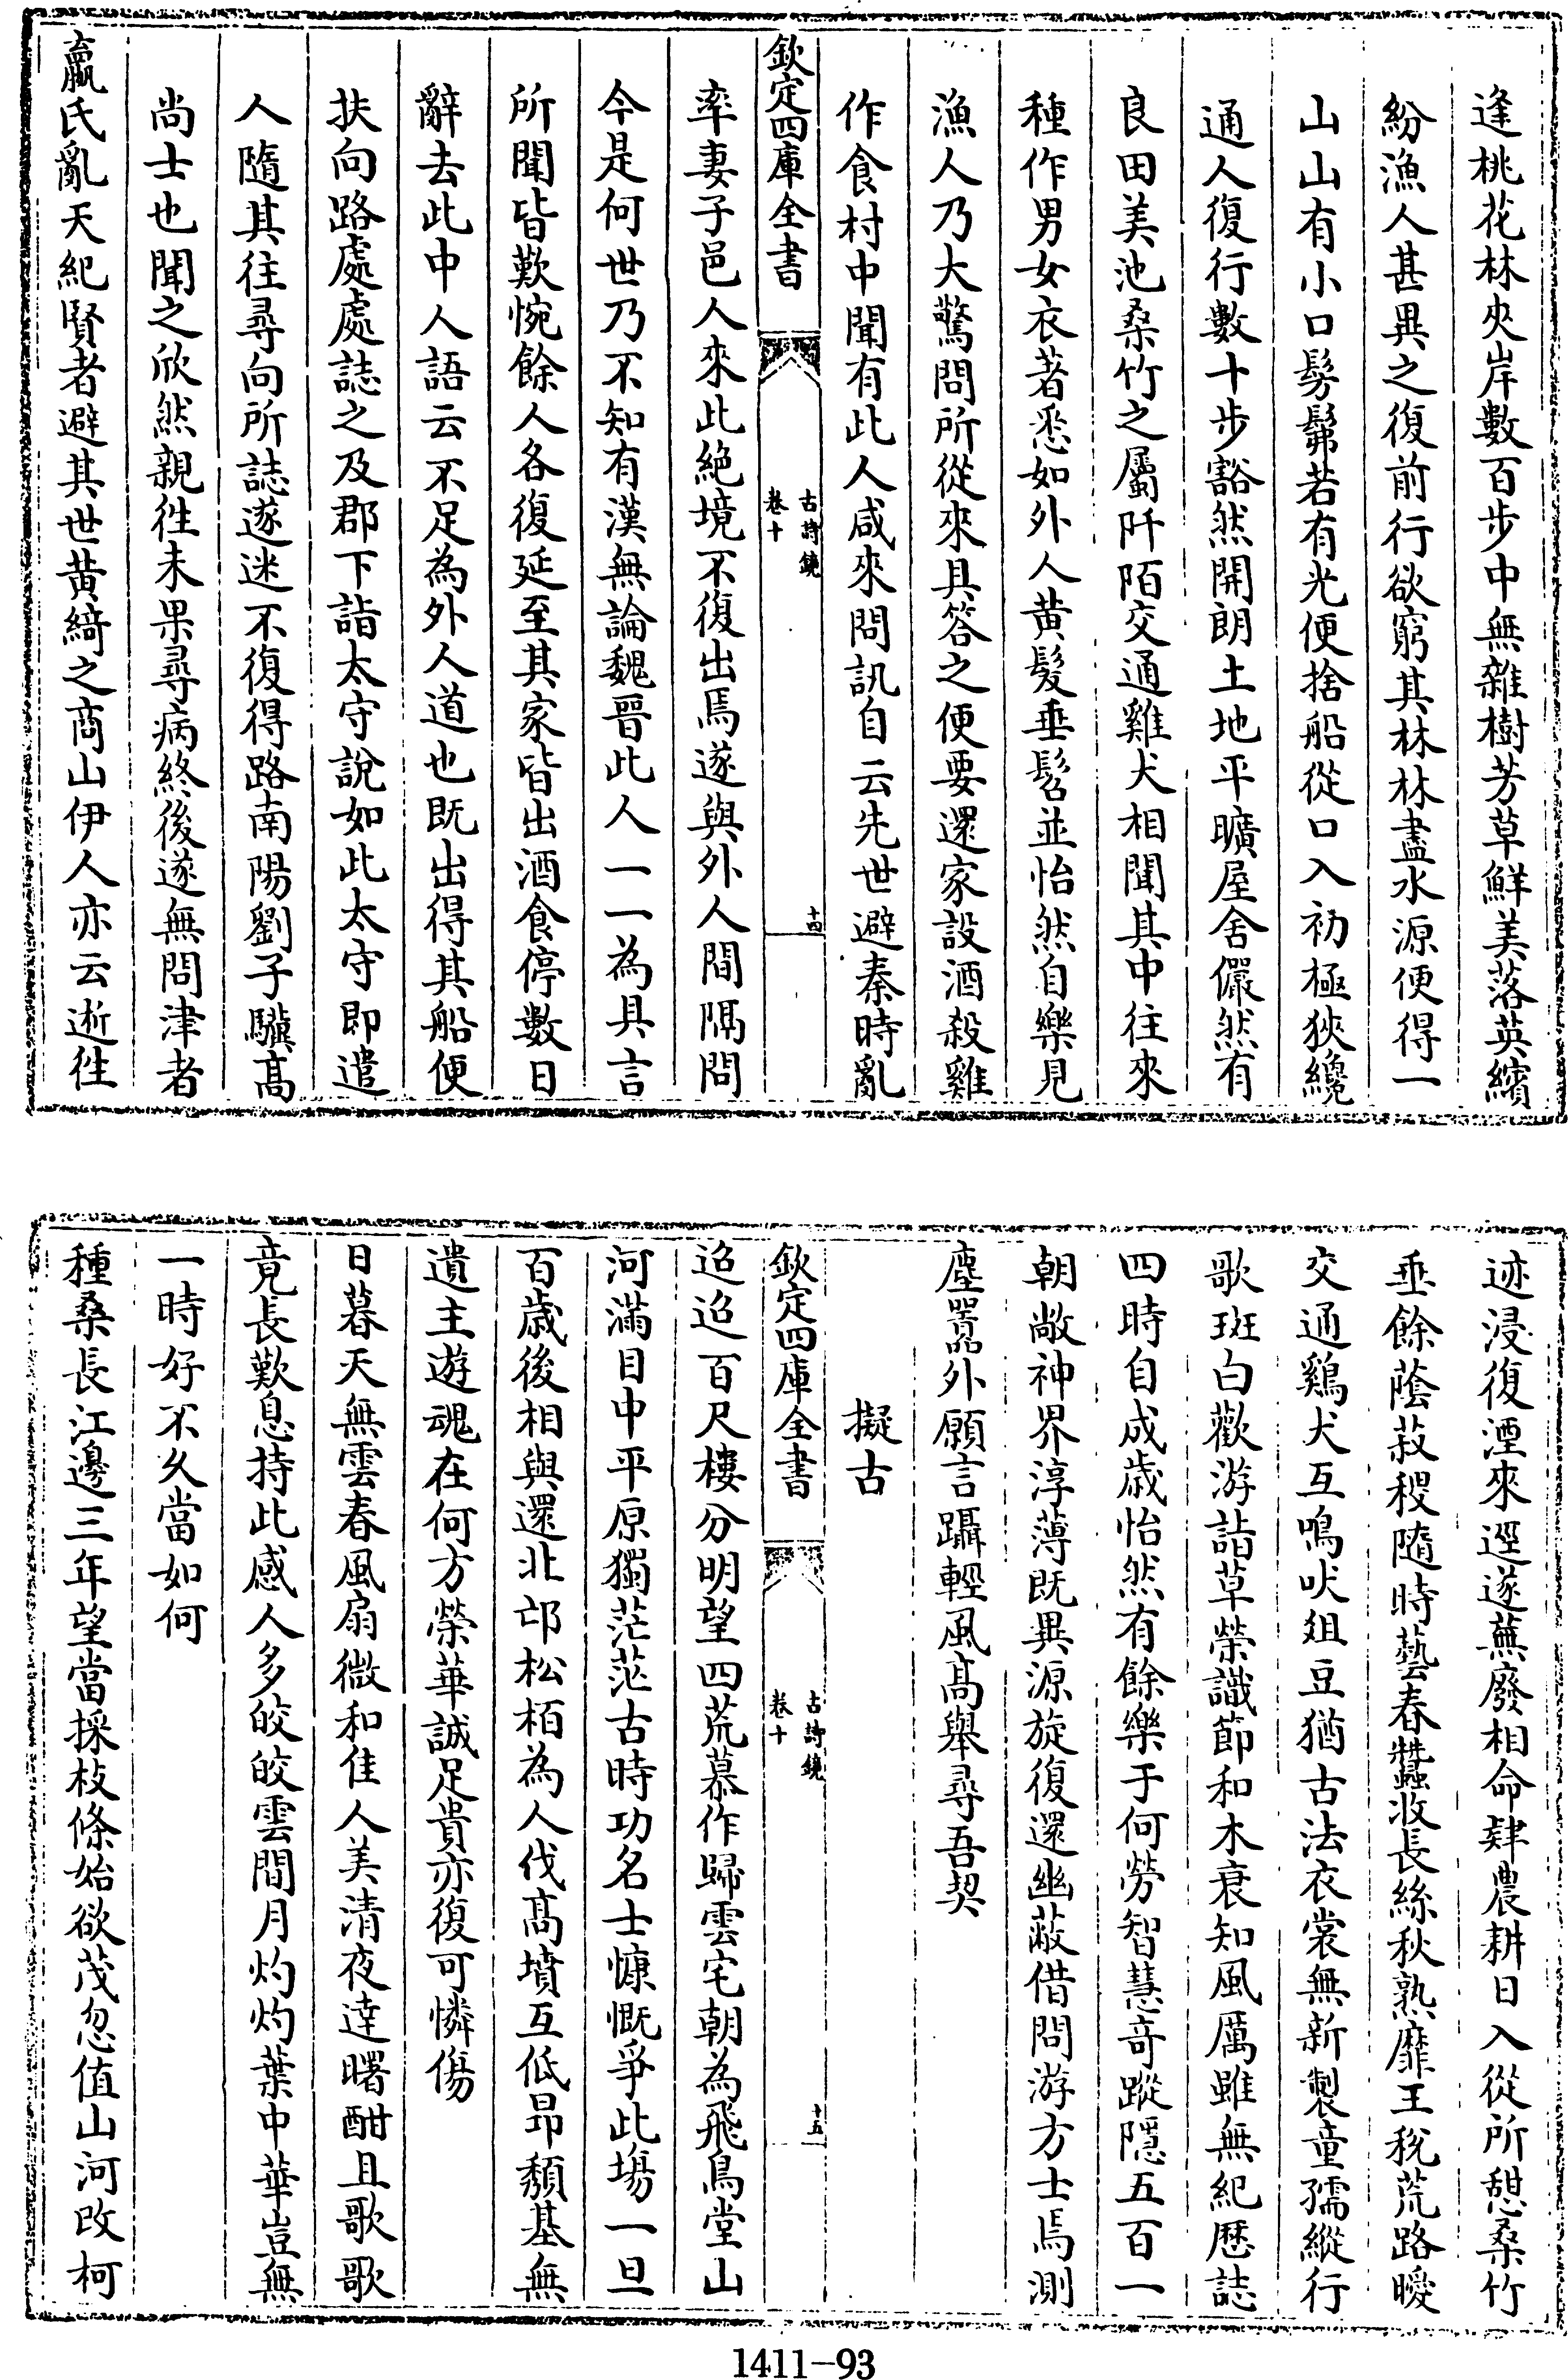 逢桃花林夾岸數百步中無雜樹芳草鮮美落英繽
紛漁人甚異之復前行欲窮其林林盡水源便得一
山山有小口髣髴若有光便捨船從口入初極狹纔
通人復行數十步豁然開朗土地平曠屋舍儼然有
良田美池桑竹之屬阡陌交通雞犬相聞其中往來
種作男女衣著悉如外人黄髮垂髫並怡然自樂見
漁人乃大驚問所從來具答之便要還家設酒殺雞
作食村中聞有此人咸來問訊自云先世避秦時亂
欽定四庫全書
古詩鏡
卷十
十四
率妻子邑人來此絶境不復出焉遂與外人間隔問
今是何世乃不知有漢無論魏晉此人一一為具言
所聞皆歎惋餘人各復延至其家皆出酒食停數日
辭去此中人語云不足為外人道也既出得其船便
扶向路處處誌之及郡下詣太守說如此太守即遣
人隨其往尋向所誌遂迷不復得路南陽劉子驥髙
尚士也聞之欣然親徃未果尋病終後遂無問津者
嬴氏亂天紀賢者避其世黄綺之商山伊人亦云逝徃
迹浸復湮來逕遂蕪廢相命肄農耕日入從所憇桑竹
垂餘蔭菽稷隨時藝春蠶收長絲秋熟靡王稅荒路曖
交通鷄犬互鳴吠爼豆猶古法衣裳無新製童孺縱行
歌斑白歡游詣草榮識節和木衰知風厲雖無紀厯誌
四時自成歳怡然有餘樂于何勞智慧竒蹤隱五百一
朝敞神界淳薄既異源旋復還幽蔽借問游方士焉測
塵囂外願言躡輕風髙舉尋吾契
擬古
欽定四庫全書
古詩鏡
卷十
十五
迢迢百尺樓分明望四荒慕作歸雲宅朝為飛鳥堂山
河滿目中平原獨茫茫古時功名士慷慨爭此塲一旦
百歳後相與還北邙松栢為人伐髙墳互低昻頽基無
遺主遊魂在何方榮華誠足貴亦復可憐傷
日暮天無雲春風扇微和佳人美清夜達曙酣且歌歌
竟長歎息持此感人多皎皎雲間月灼灼葉中華豈無
一時好不久當如何
種桑長江邊三年望當採枝條始欲茂忽值山河改柯
1411-93